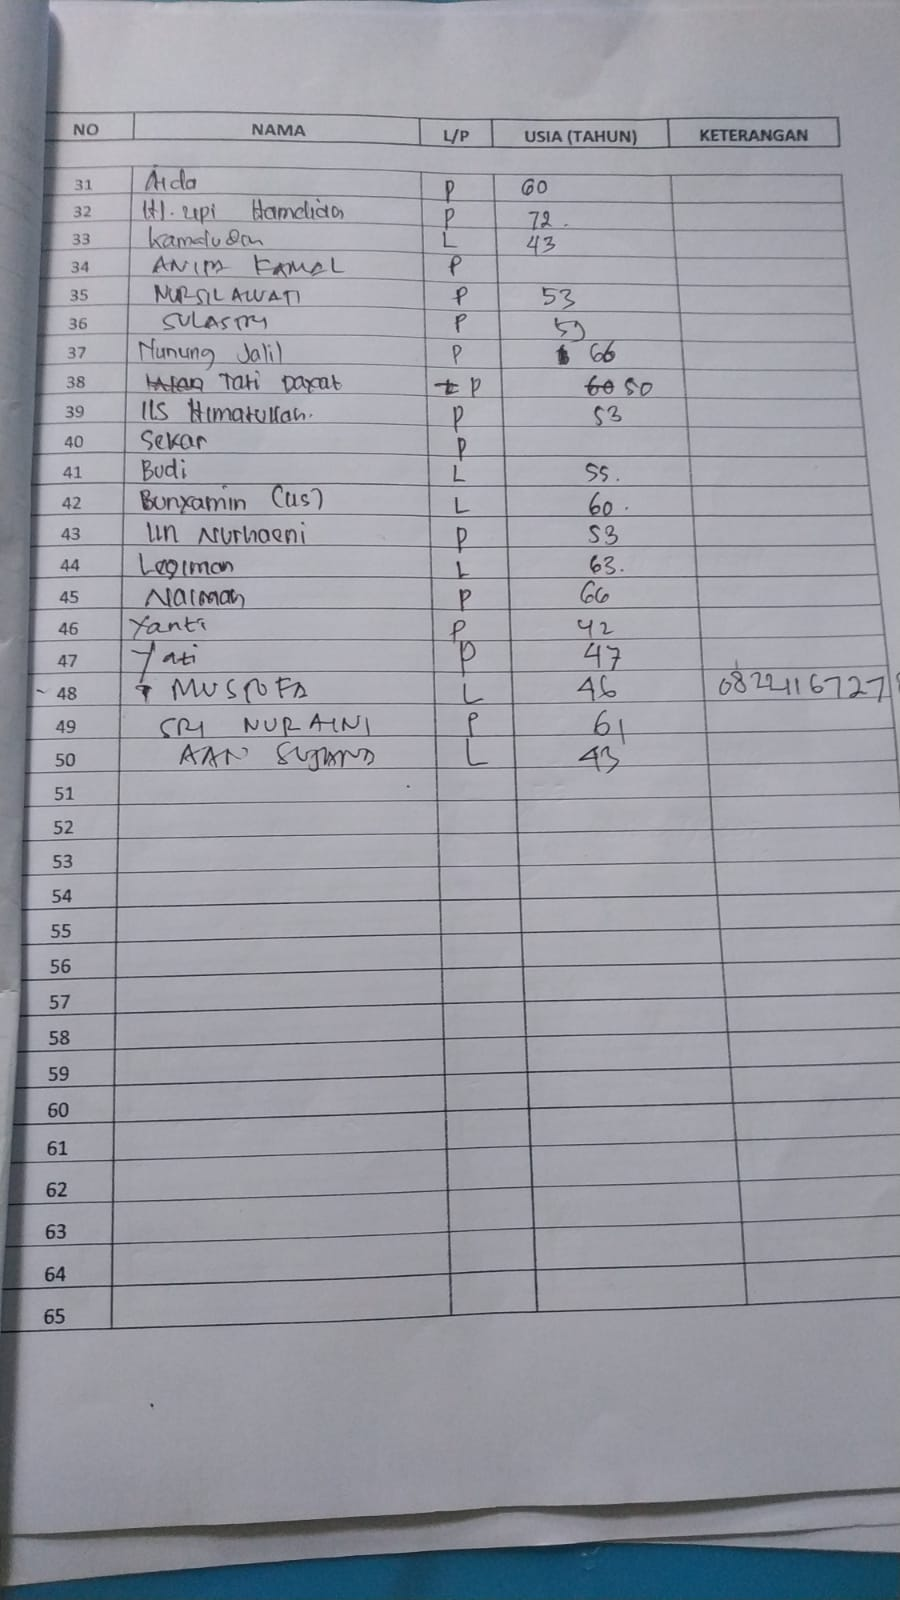 NO NAMA L/P USIA (TAHUN) KETERANGAN
31 Aida P 60
32 Hj. Upi Hamdiah P 72.
33 Kamaludan L 43
34 ANITA KAMAL P
35 NURSILAWATI P 53
36 SULASTRI P
37 Nunung Jalil P 66
38 Tati Daxat P 50
39 IIS Himatullah. P 53
40 Sekar P
41 Budi L 55.
42 Bunyamin (us) L 60.
43 Iin Nurhaeni P 53
44 Legiman L 63.
45 Naimah P 66
46 Yanti P 42
47 Yati P 47
48 MUSTOFA L 46
49 SRI NURAINI P 61
50 AAN SUJANA L 43
51
52
53
54
55
56
57
58
59
60
61
62
63
64
65